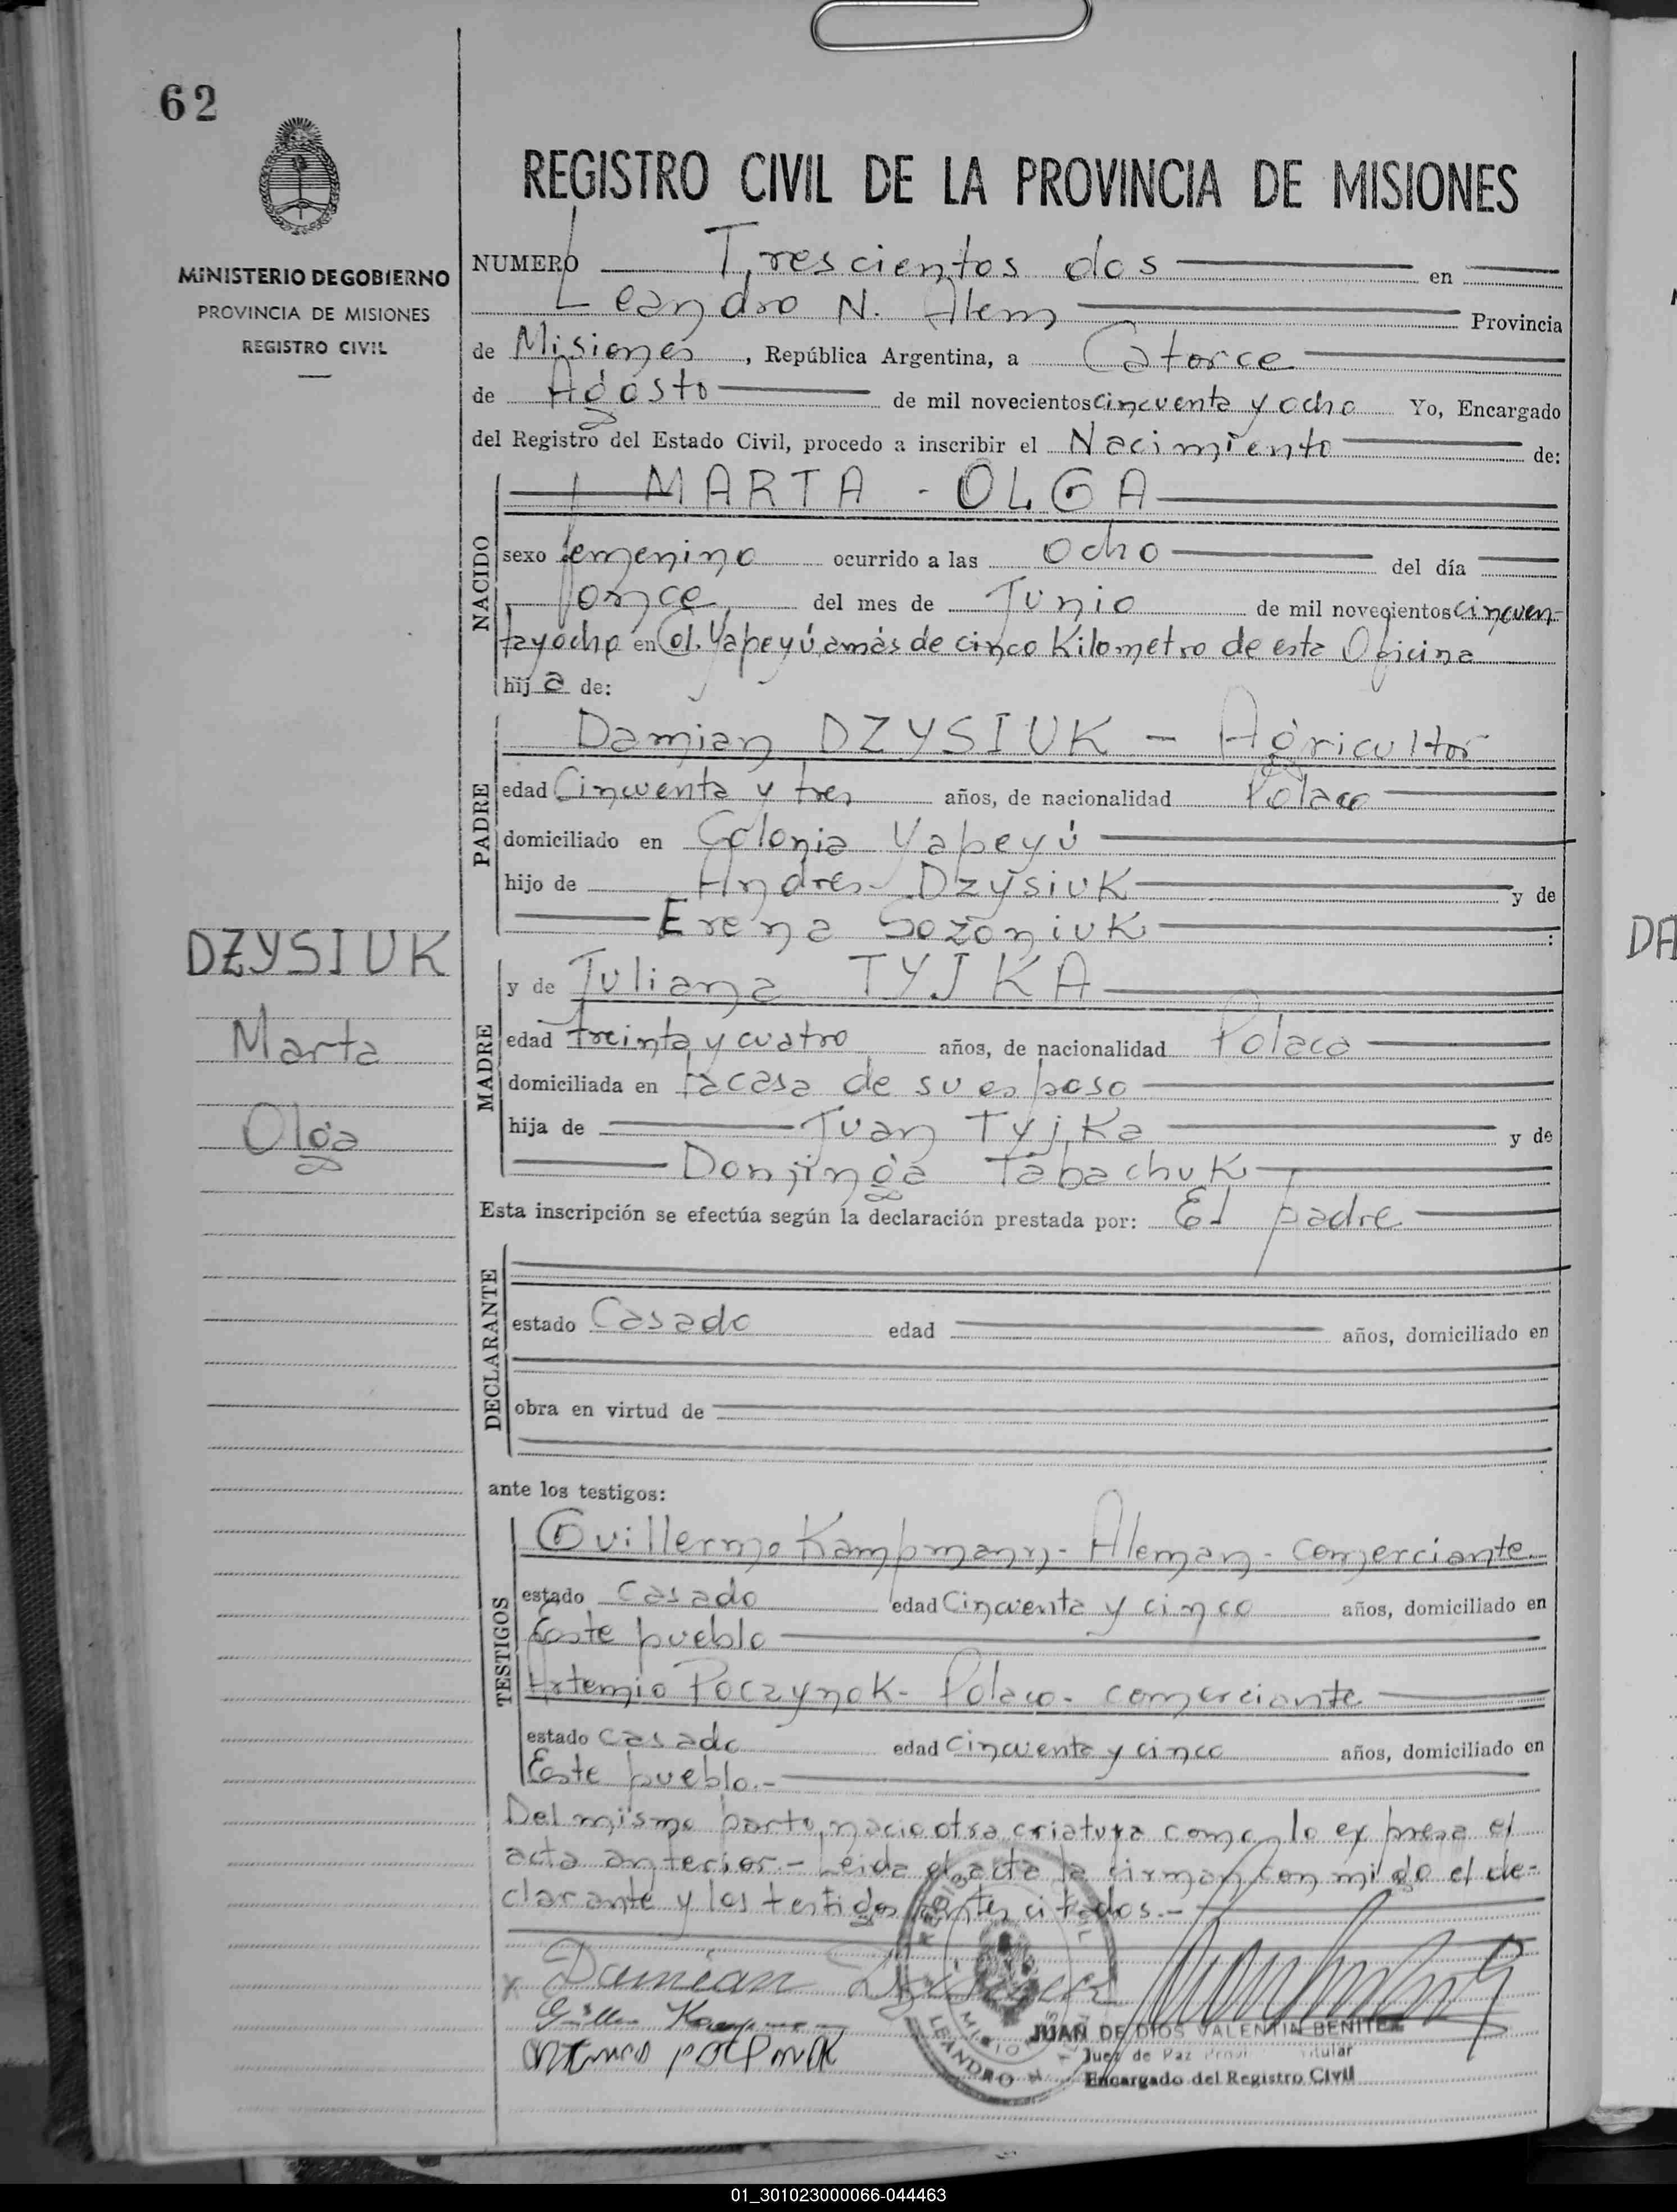 62
REGISTRO CIVIL DE LA PROVINCIA DE MISIONES
MINISTERIO DE GOBIERNO
PROVINCIA DE MISIONES
REGISTRO CIVIL
NUMERO Trescientos dos en
Leandro N. Alem Provincia
de Misiones, República Argentina, a Catorce
de Agosto de mil novecientos cincuenta y ocho Yo, Encargado
del Registro del Estado Civil, procedo a inscribir el Nacimiento de:
NACIDO
MARTA - OLGA
sexo femenino ocurrido a las ocho del día
onçe del mes de Junio de mil novecientos cincuen-
tayocho en Col. Yapeyú, amás de cinco Kilometro de esta Oficina
hija de:
PADRE
Damian DZYSIUK - Agricultor
edad Cincuenta y tres años, de nacionalidad Polaco
domiciliado en Colonia Yapeyú
hijo de Andres Dzysiuk y de
Erena Sozoniuk :
DZYSIUK
Marta
Olga
MADRE
y de Juliana TYJKA
edad treinta y cuatro años, de nacionalidad Polaca
domiciliada en la casa de su esposo
hija de Juan Tyjka y de
Donjinga Tabachuk
Esta inscripción se efectúa según la declaración prestada por: El padre
DECLARANTE
estado Casado edad años, domiciliado en
obra en virtud de
ante los testigos:
TESTIGOS
Guillermo Kampmann - Aleman - comerciante
estado casado edad Cincuenta y cinco años, domiciliado en
Este pueblo
Artemio Poczynok - Polaco - comerciante
estado casado edad Cincuenta y cinco años, domiciliado en
Este pueblo.-
Del mismo parto, nacio otra criatura como lo expresa el
acta anterior.- Leida el acta la firman conmigo el de-
clarante y los testigos antes citados.-
x Damian
JUAN DE DIOS VALENTIN BENITEZ
Juez de Paz Titular
Encargado del Registro Civil
LEANDRO N.
DA
01_301023000066-044463